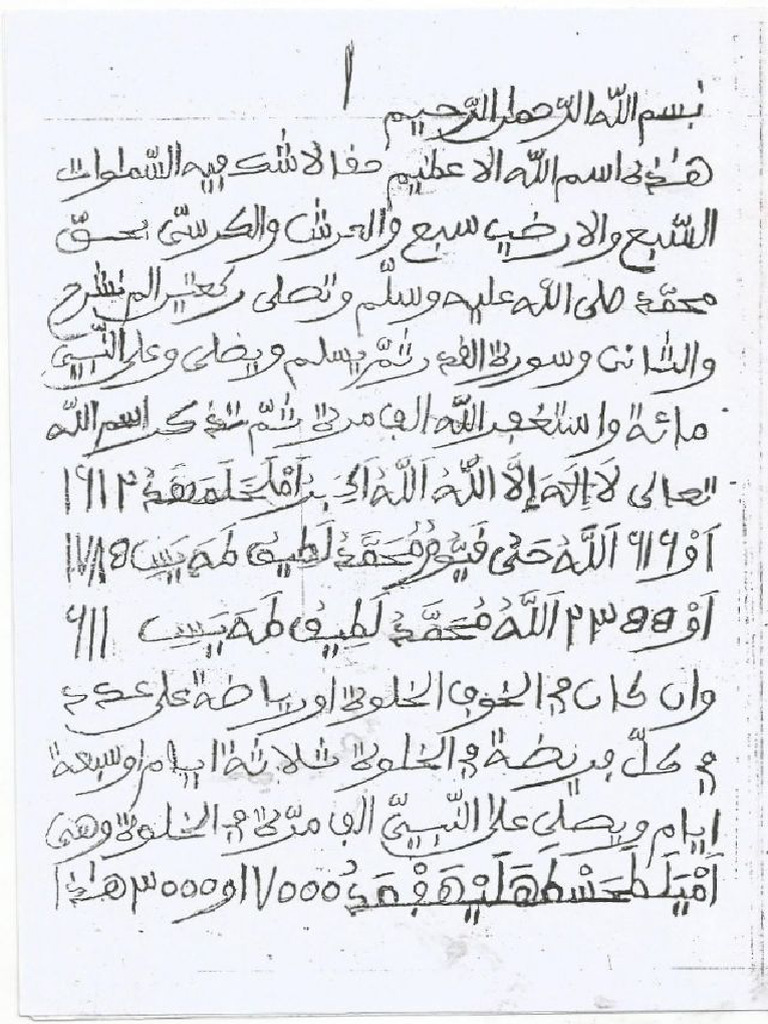 ا
بسم الله الرحمن الرحيم
هذه اسم الله الاعظيم حفا لا شك فيه السموات
السبع والارضين سبع والعرش والكرسي بحق
محمد صلى الله عليه وسلم وتصلى ركعتين الم نشرح
والثانى وسورة القدر ثم يسلم ويصلى وعلى النبي
مائة واستغفر الله الف مرة ثم تذكر اسم الله
تعالى لَا إِلَهَ إِلَّا اللَّهُ اَللَّهُ ١٩١٢
اَوْ ٦١٦ اَللَّهُ حَىُّ قَيُّومُ مُحَمَّدُ لَطِيفُ طَهَ يَسِ
اَوْ ٢٣٥٥ اَللَّهُ مُحَمَّدُ لَطِيفُ طَهَ يَسِ ٦١١
وان كان في الخوف الخلوة او رياضة على عدد
في كلّ فريضة في الخلوة ثلاثة ايام او سبعة
ايام ويصلي على النّبيّ الف مرّة في الخلوة وهى
١٧٠٠٠ او ٣٠٠٠ هذا